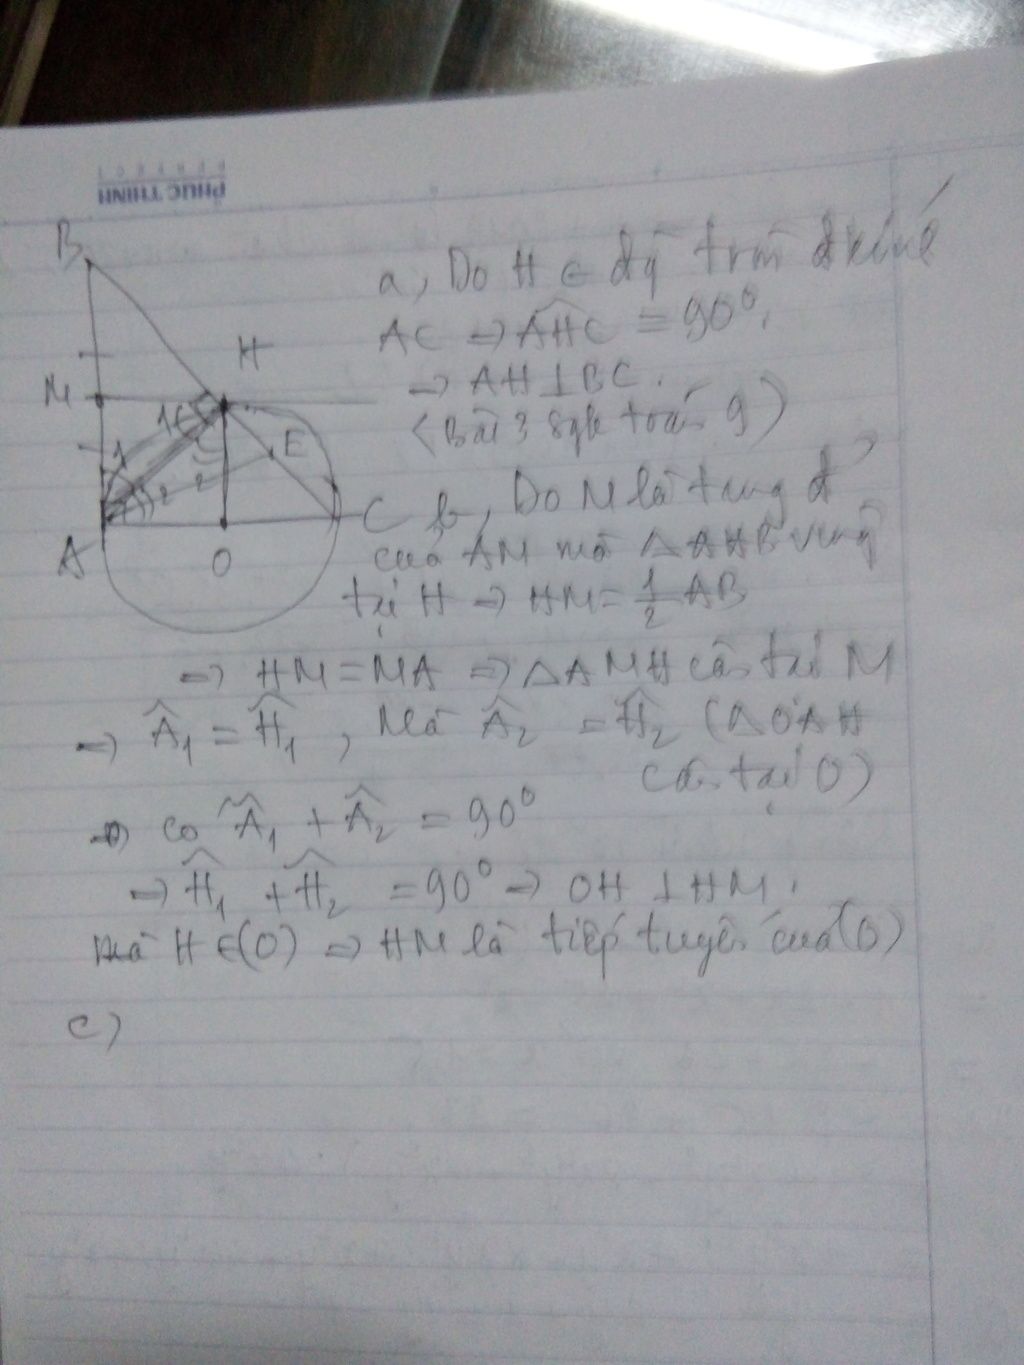 PHUC THINH
PERFECT
B
M
H
1
1
E
2
2
A
O
C
a, Do H ∈ đg tròn đkính
AC => ∠AHC = 90°,
=> AH ⊥ BC.
(Bài 3 sgk toán 9)
b, Do M là trung đ
của AM mà △AHB vuông
tại H => HM = 1/2 AB
=> HM = MA => △AMH cân tại M
=> Â₁ = Ĥ₁, Mà Â₂ = Ĥ₂ (△OAH
cân tại O)
=> có Â₁ + Â₂ = 90°
=> Ĥ₁ + Ĥ₂ = 90° => OH ⊥ HM,
mà H ∈ (O) => HM là tiếp tuyến của (O)
c)